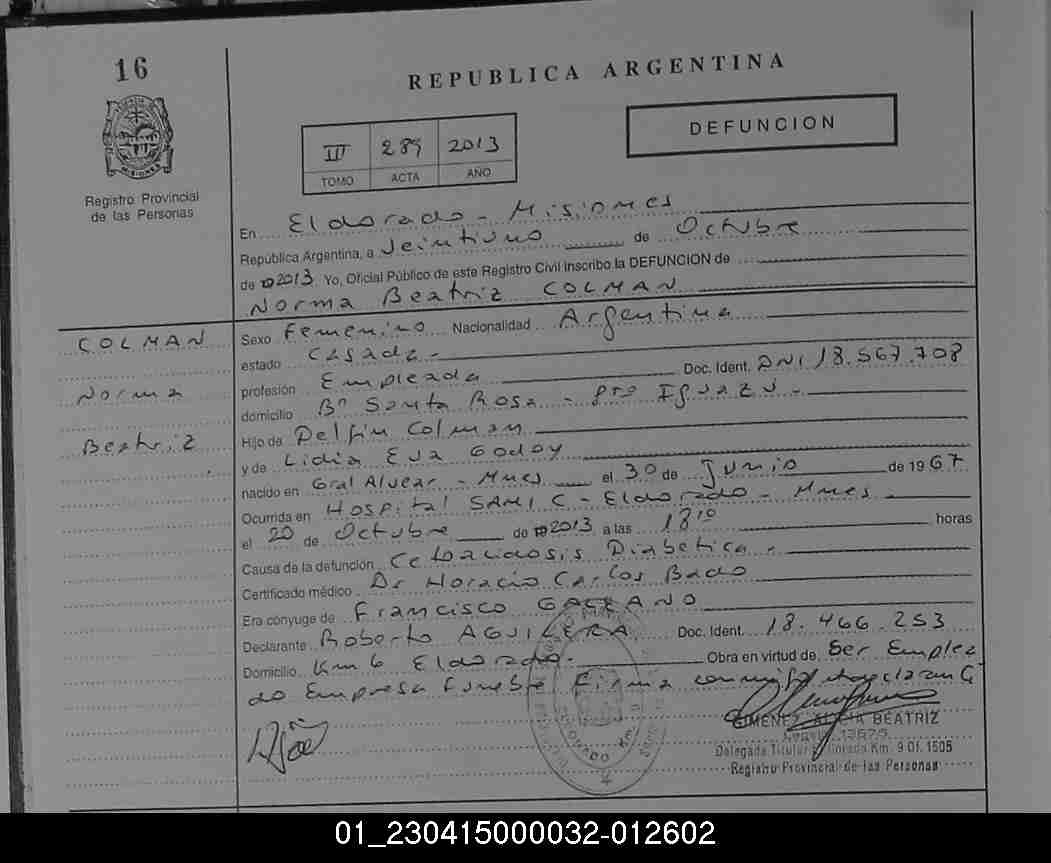 16
REPUBLICA ARGENTINA
DEFUNCION
III 289 2013
TOMO ACTA AÑO
Registro Provincial
de las Personas
En Eldorado - Misiones
República Argentina, a Veintiuno de Octubre
de 2013 Yo, Oficial Público de este Registro Civil inscribo la DEFUNCION de
Norma Beatriz COLMAN
COLMAN
Norma
Beatriz
Sexo Femenino Nacionalidad Argentina
estado Casada -
profesión Empleada Doc. Ident. DNI 18.567.708
domicilio Bº Santa Rosa - Pto Iguazú -
Hijo de Delfin Colman
y de Lidia Eva Godoy
nacido en Gral Alvear - Mnes el 30 de Junio de 1967
Ocurrida en Hospital SAMIC - Eldorado - Mnes
el 20 de Octubre de 2013 a las 18:10 horas
Causa de la defunción Cetoacidosis Diabetica -
Certificado médico Dr Horacio Carlos Bado
Era cónyuge de Francisco GALEANO
Declarante Roberto AGUILERA Doc. Ident. 18.466.253
Domicilio Km 6 Eldorado - Obra en virtud de Ser Emplea
do Empresa Funebre Firma conmigo declarante
GIMENEZ ALICIA BEATRIZ
Delegada Titular Eldorado Km. 9 Of. 1505
Registro Provincial de las Personas
01_230415000032-012602